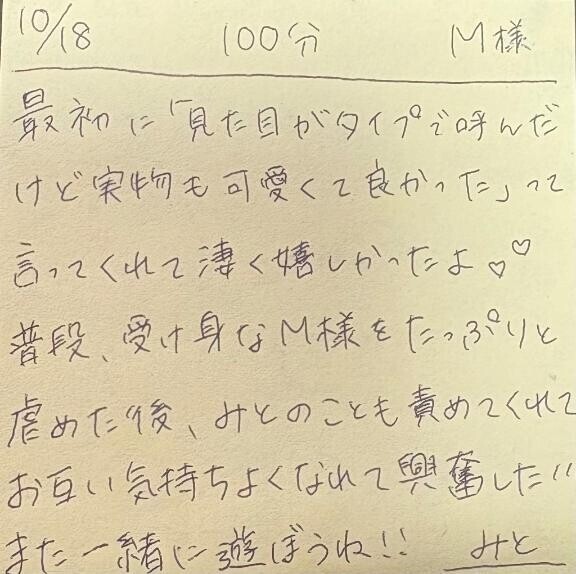 10/18 100分 M様
最初に「見た目がタイプで呼んだ
けど実物も可愛くて良かった」って
言ってくれて凄く嬉しかったよ♡♡
普段、受け身なM様をたっぷりと
虐めた後、みとのことも責めてくれて
お互い気持ちよくなれて興奮した!!
また一緒に遊ぼうね!! みと